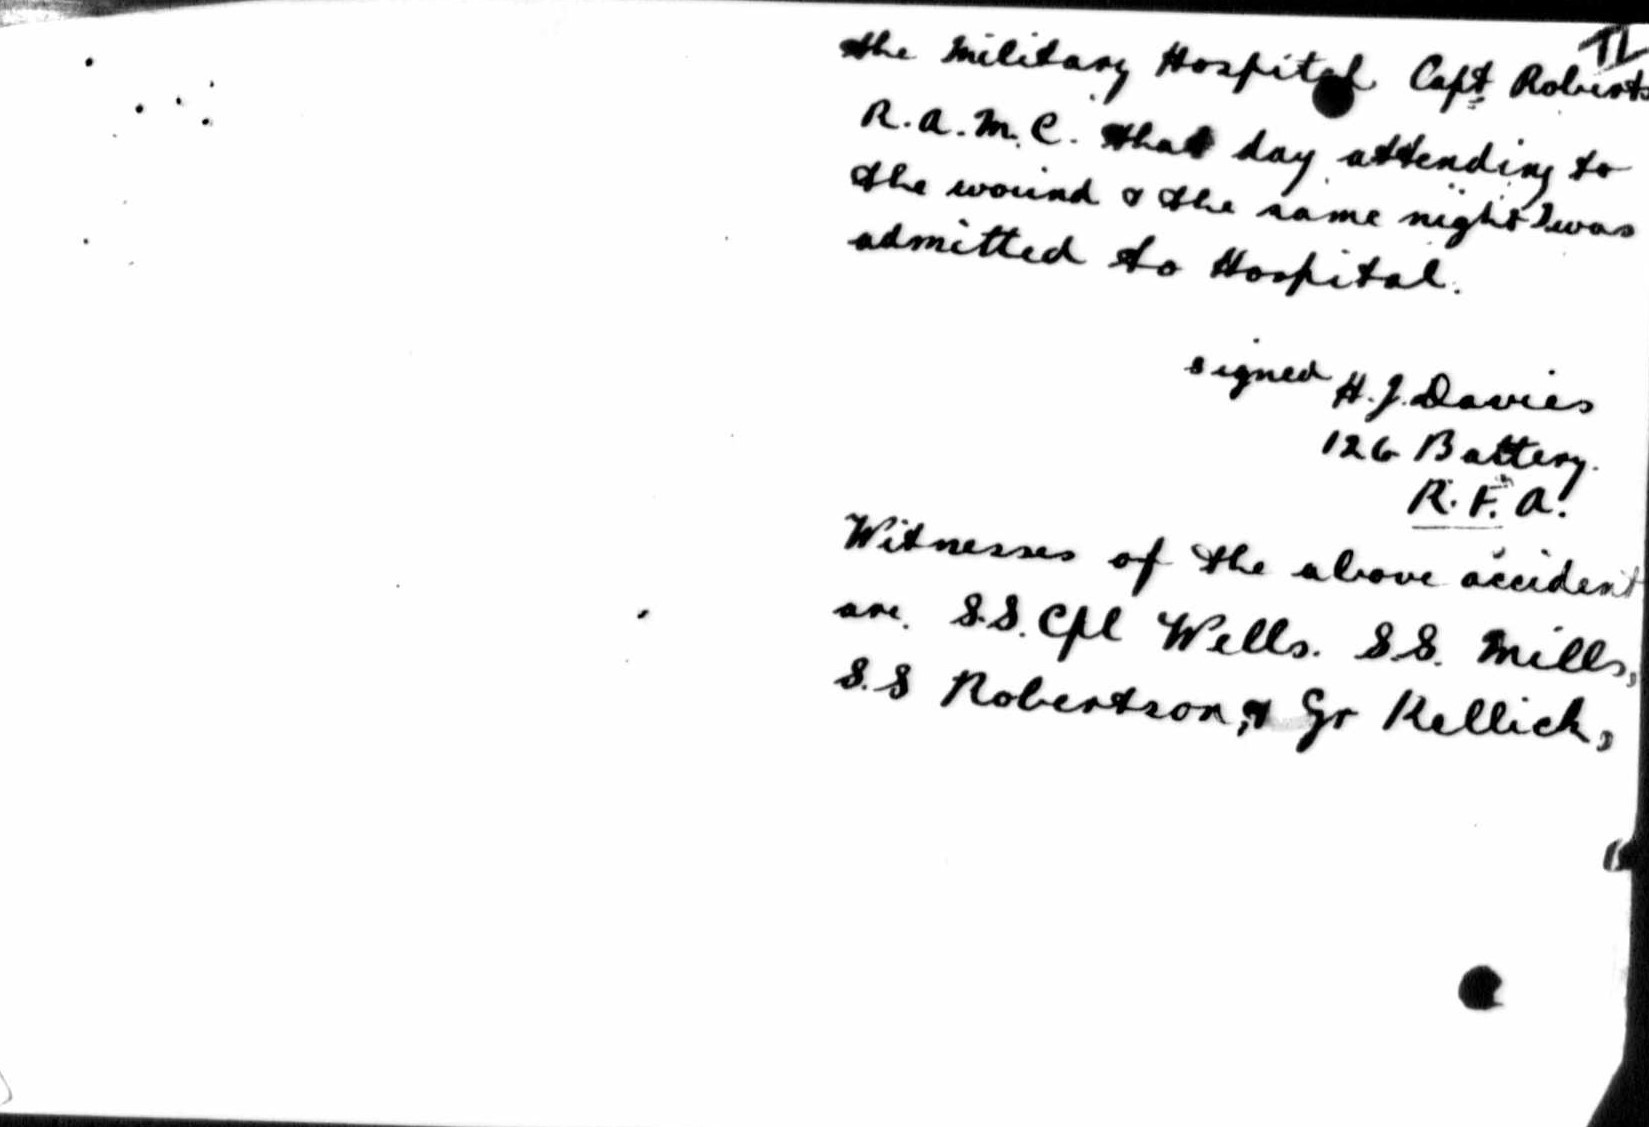 the Military Hospital Capt Roberts
R.A.M.C. that day attending to
the wound & the same night I was
admitted to Hospital.
signed H.J. Davies
126 Battery.
R.F.A.
Witnesses of the above accident
are. S.S. Cpl Wells. S.S. Mills,
S.S Robertson, & Gr Kellick,